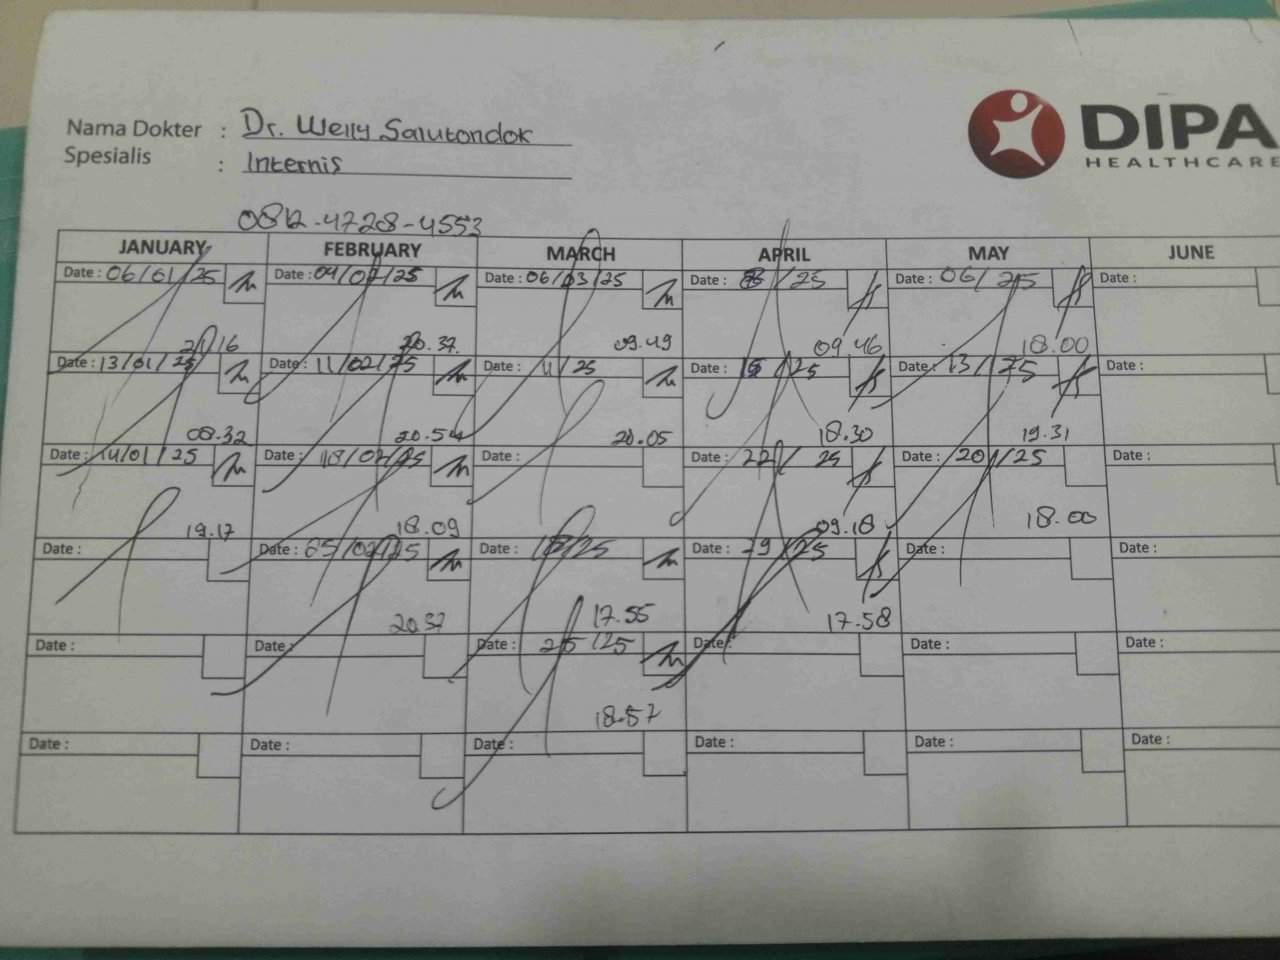 Nama Dokter : Dr. Welly Salutondok
Spesialis : Internis
DIPA
HEALTHCARE
0812-4728-4553
JANUARY FEBRUARY MARCH APRIL MAY JUNE
Date : 06/01/25 Date : 04/02/25 Date : 06/03/25 Date : 8/25 Date : 06/25 Date :
21.16 20.37 09.49 09.46 18.00
Date : 13/01/25 Date : 11/02/25 Date : 11/25 Date : 15/25 Date : 13/25 Date :
08.32 20.54 20.05 18.30 19.31
Date : 14/01/25 Date : 18/02/25 Date : Date : 22/25 Date : 20/25 Date :
19.17 18.09 09.18 18.00
Date : Date : 25/02/25 Date : 18/25 Date : 29/25 Date : Date :
20.37 17.55 17.58
Date : Date : Date : 25/25 Date : Date : Date :
18.57
Date : Date : Date : Date : Date : Date :